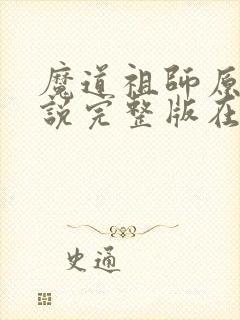 魔道祖師原
說完整版在
史通